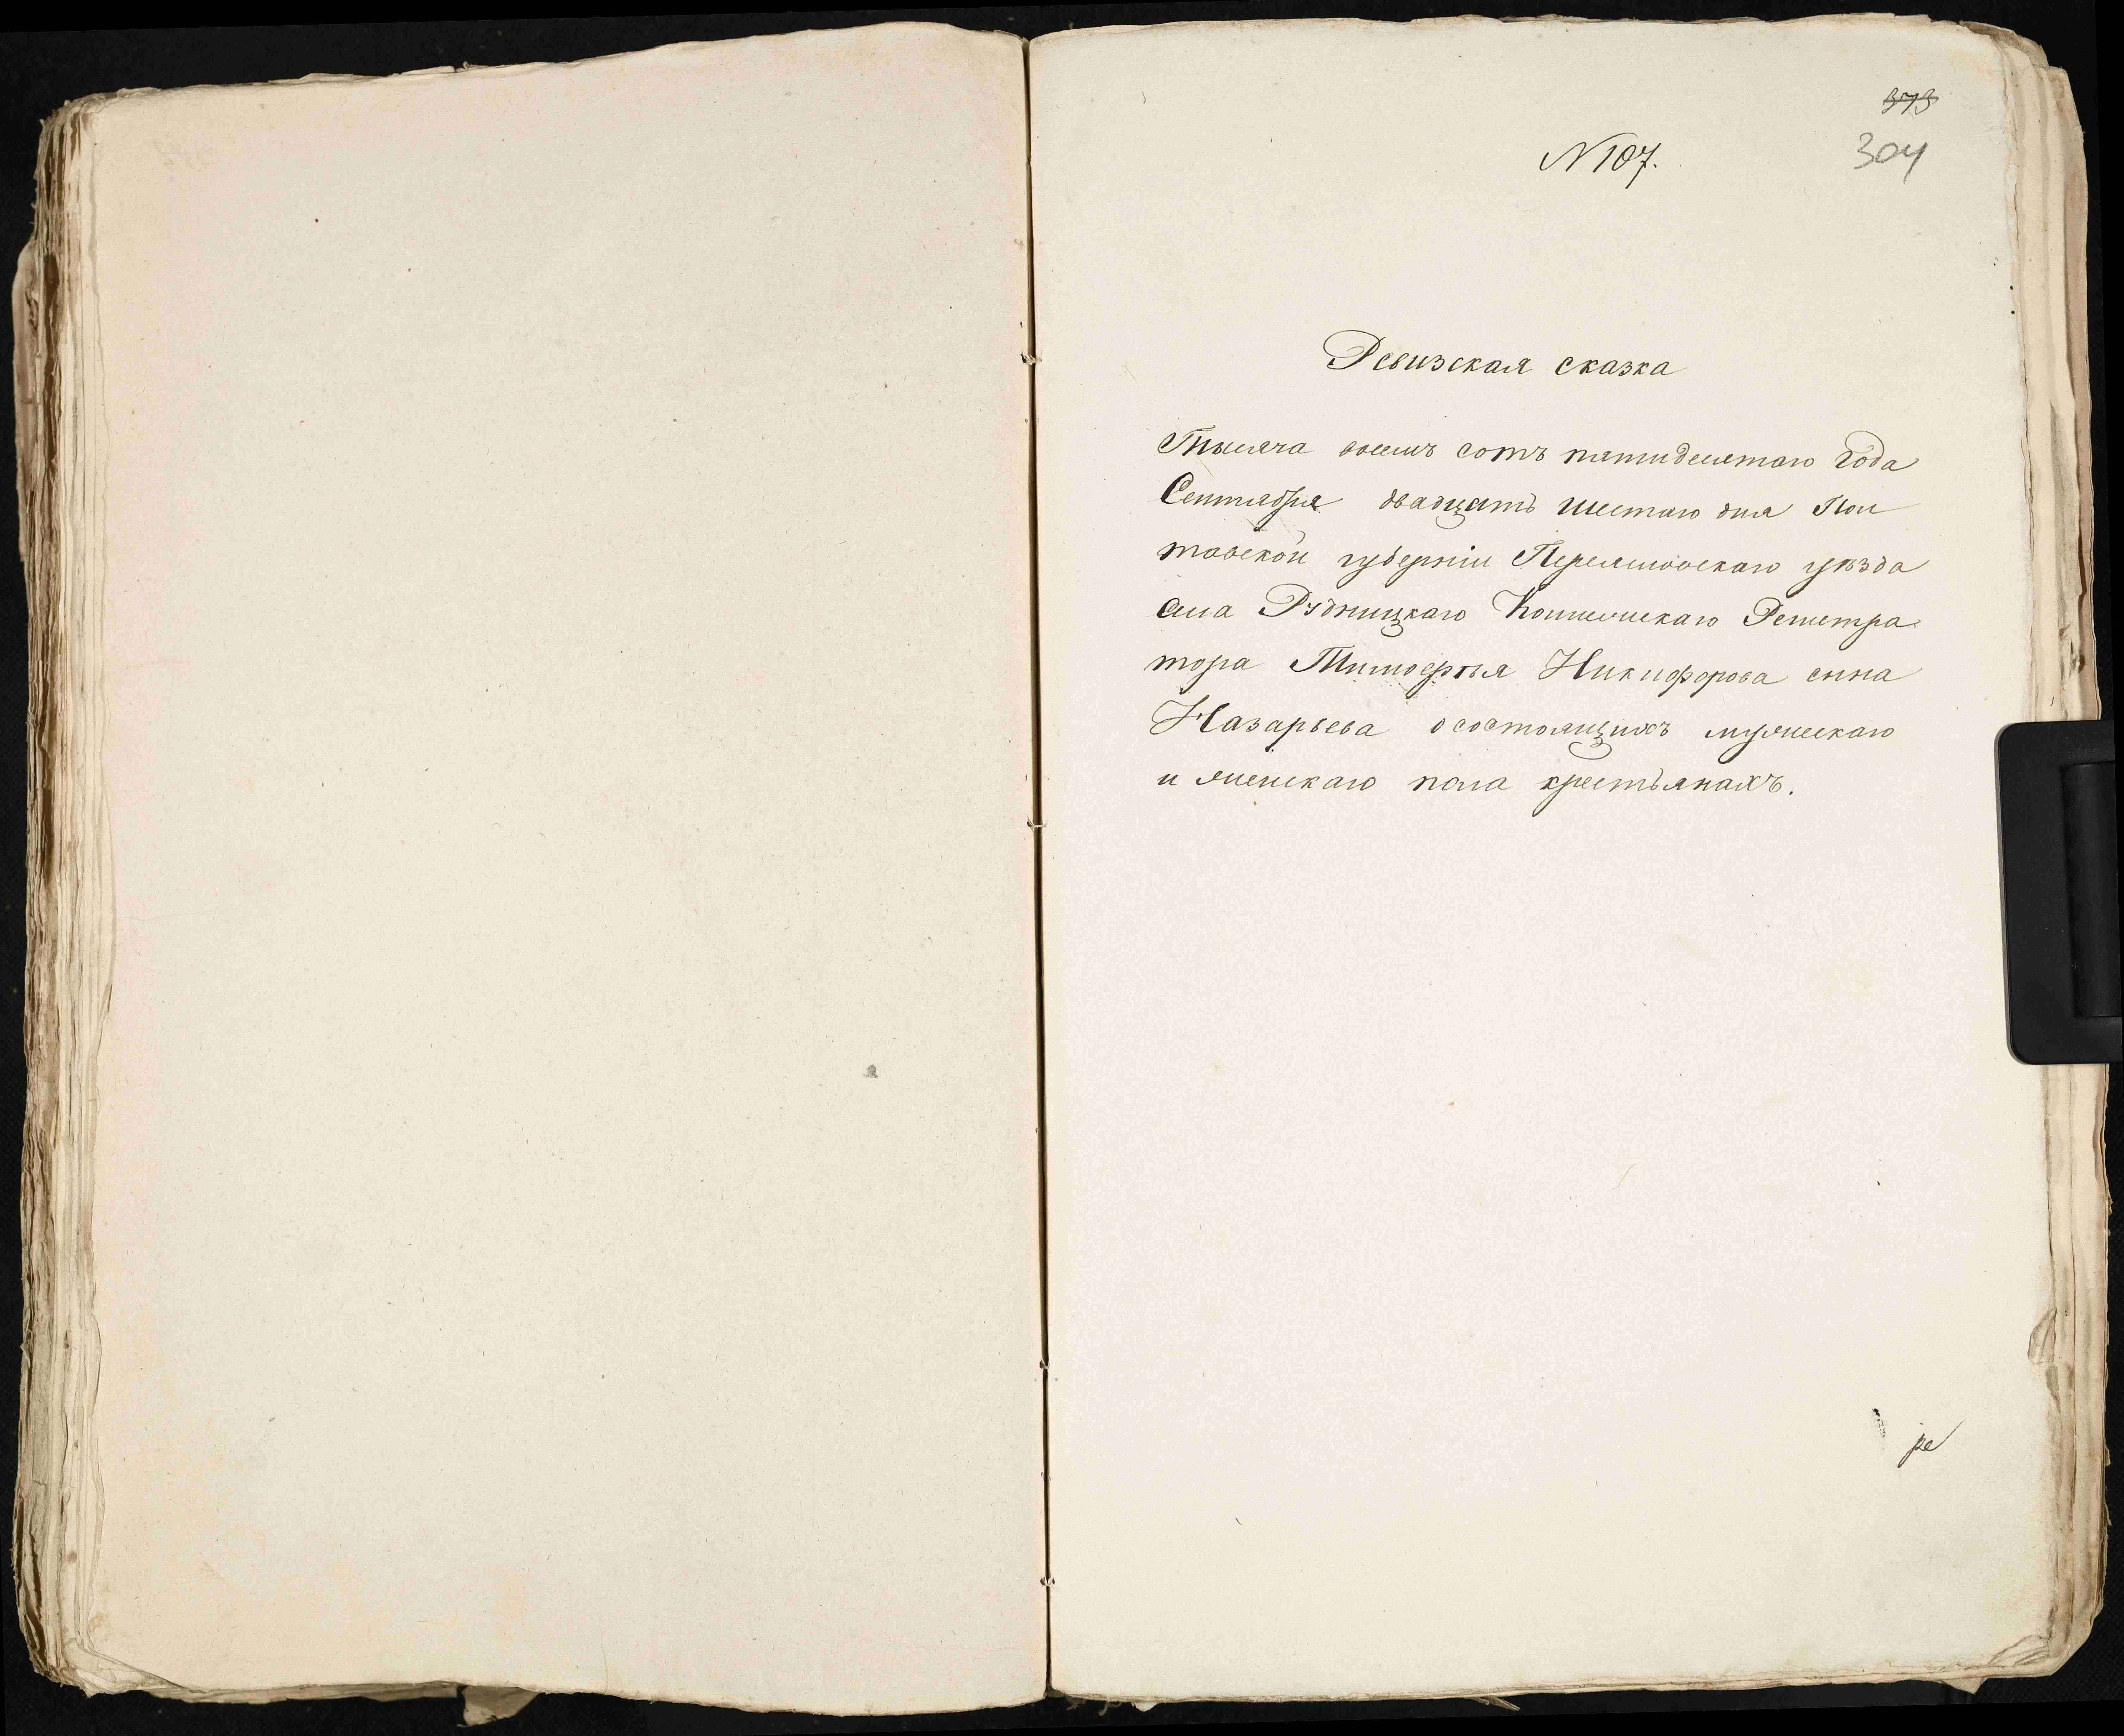 373
304
N 107.
Ревизская сказка
Тысяча восемъ сотъ пятидесятаго года
Сентября двадцать шестаго дня Пол
тавской губерніи Переяславскаго уѣзда
села Рудницкаго Коллежскаго Регистра
тора Тимофѣя Никифорова сына
Назарьева о состоящихъ мужескаго
и женскаго пола крестьянахъ.
ре